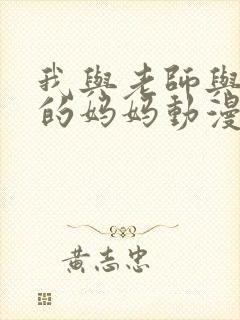 我與老師與
的妈妈動漫
黃志忠